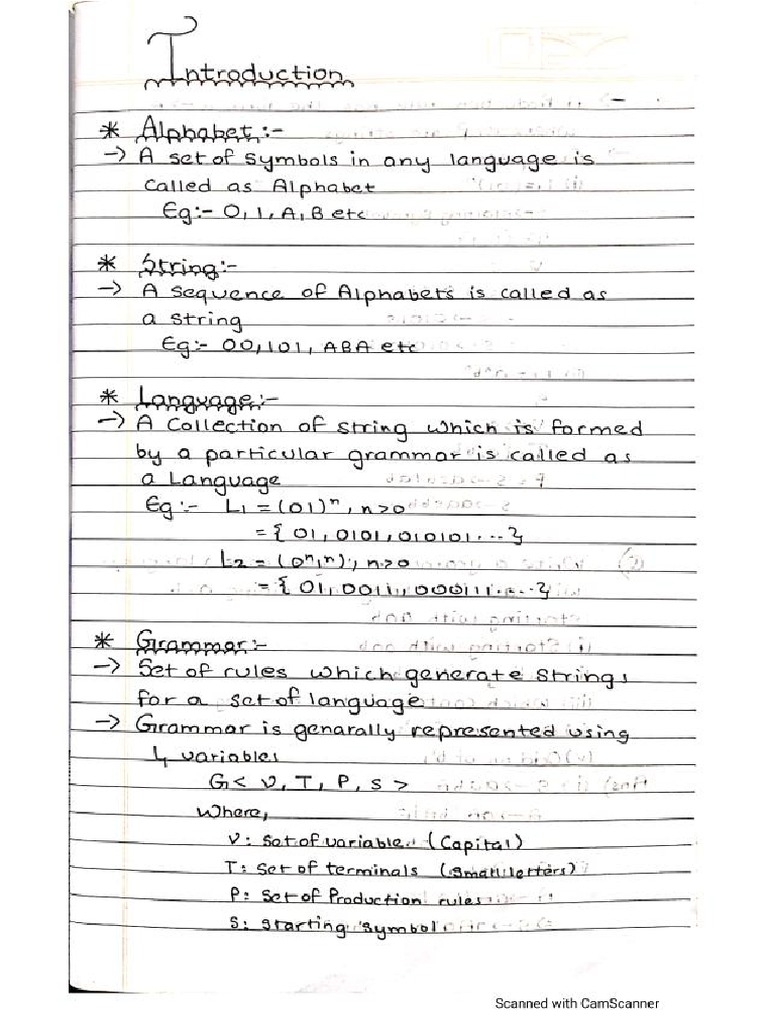 Introduction
* Alphabet:-
-> A set of symbols in any language is
called as Alphabet
Eg:- 0, 1, A, B etc
* String:-
-> A sequence of Alphabets is called as
a string
Eg:- 00, 101, ABA etc
* Language:-
-> A Collection of string which is formed
by a particular grammar is called as
a Language
Eg:- L1 = (01)ⁿ, n>0
= { 01, 0101, 010101 ... }
L2 = (0ⁿ1ⁿ), n>0
= { 01, 0011, 000111 .... }
* Grammar:-
-> Set of rules which generate strings
for a set of language
-> Grammar is genarally represented using
4 variables
G < V, T, P, S >
Where,
V: Set of variable (Capital)
T: Set of terminals (Small letters)
P: Set of Production rules
S: Starting Symbol
Scanned with CamScanner